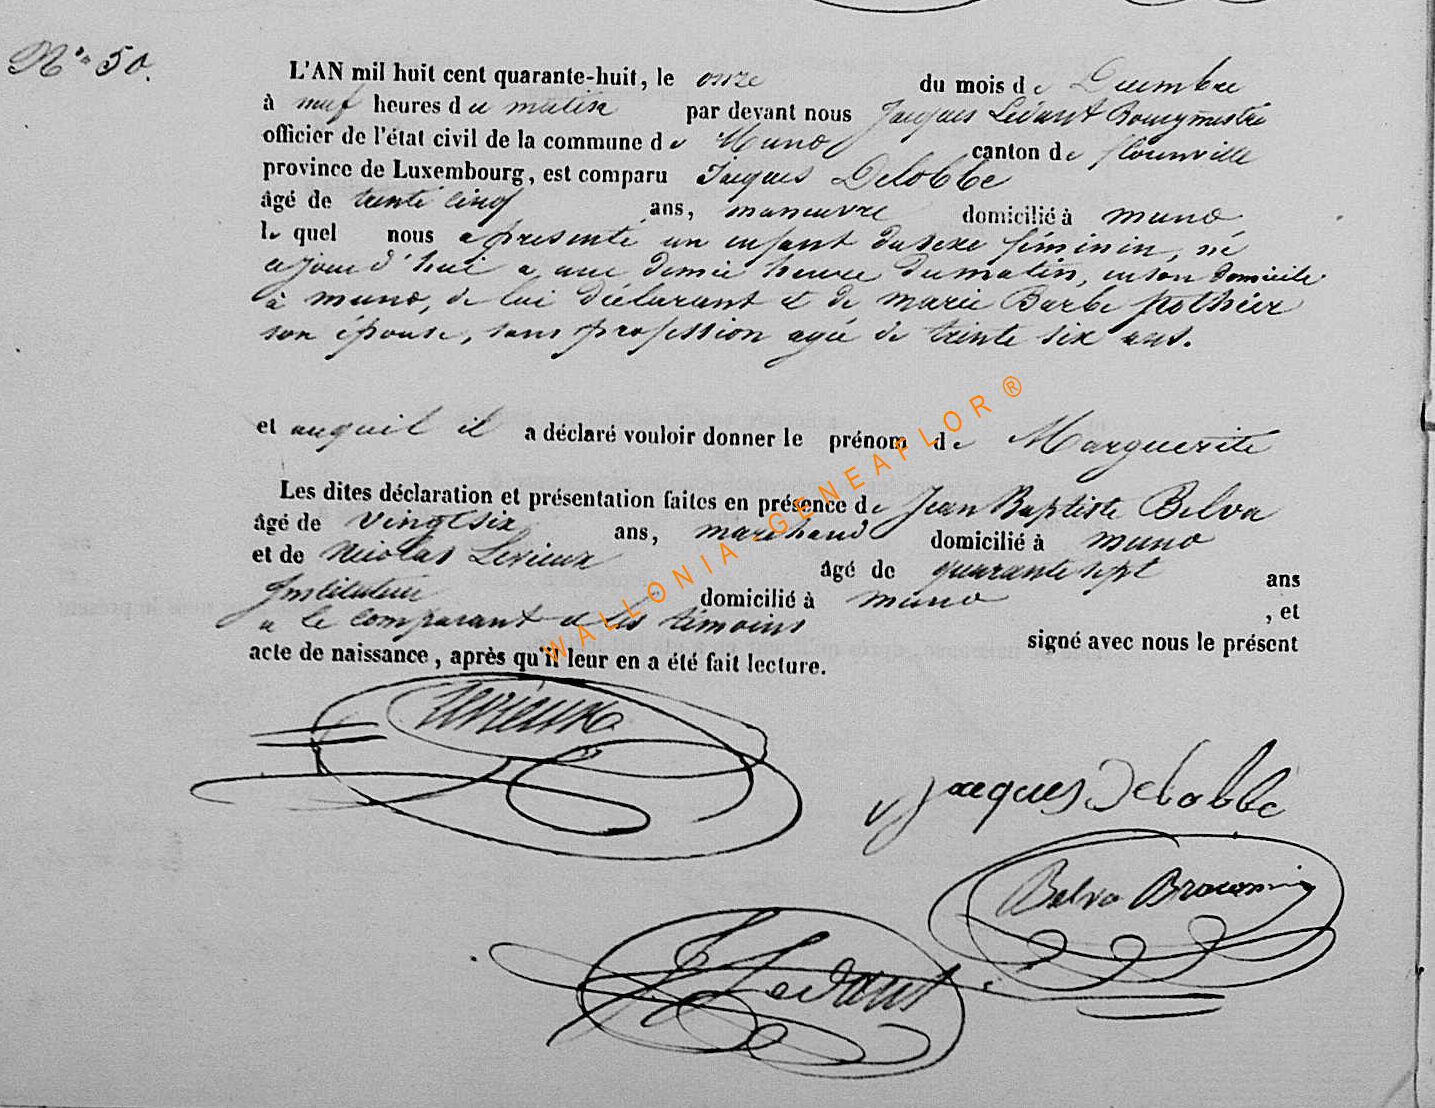 N° 50.
L'AN mil huit cent quarante-huit, le onze du mois de Decembre
à neuf heures du matin par devant nous Jacques Lédant Bourgmestre
officier de l'état civil de la commune de Muno canton de florenville
province de Luxembourg, est comparu Jacques Delobbe
âgé de trente cinq ans, manœuvre domicilié à muno
le quel nous a présenté un enfant du sexe féminin, né
cejourd'hui a une demie heure du matin, en son domicile
à muno, de lui déclarant et de marie Barbe pothier
son épouse, sans profession agée de trente six ans.
et auquel il a déclaré vouloir donner le prénom de Marguerite
Les dites déclaration et présentation faites en présence de Jean Baptiste Belva
âgé de vingt six ans, marchand domicilié à muno
et de Nicolas Lerieux âgé de quarante sept ans
Instituteur domicilié à muno , et
a le comparant et les témoins signé avec nous le présent
acte de naissance, après qu'il leur en a été fait lecture.
Lerieux
Jacques Delobbe
Belva
J Ledant
WALLONIA-GENEAFLOR®